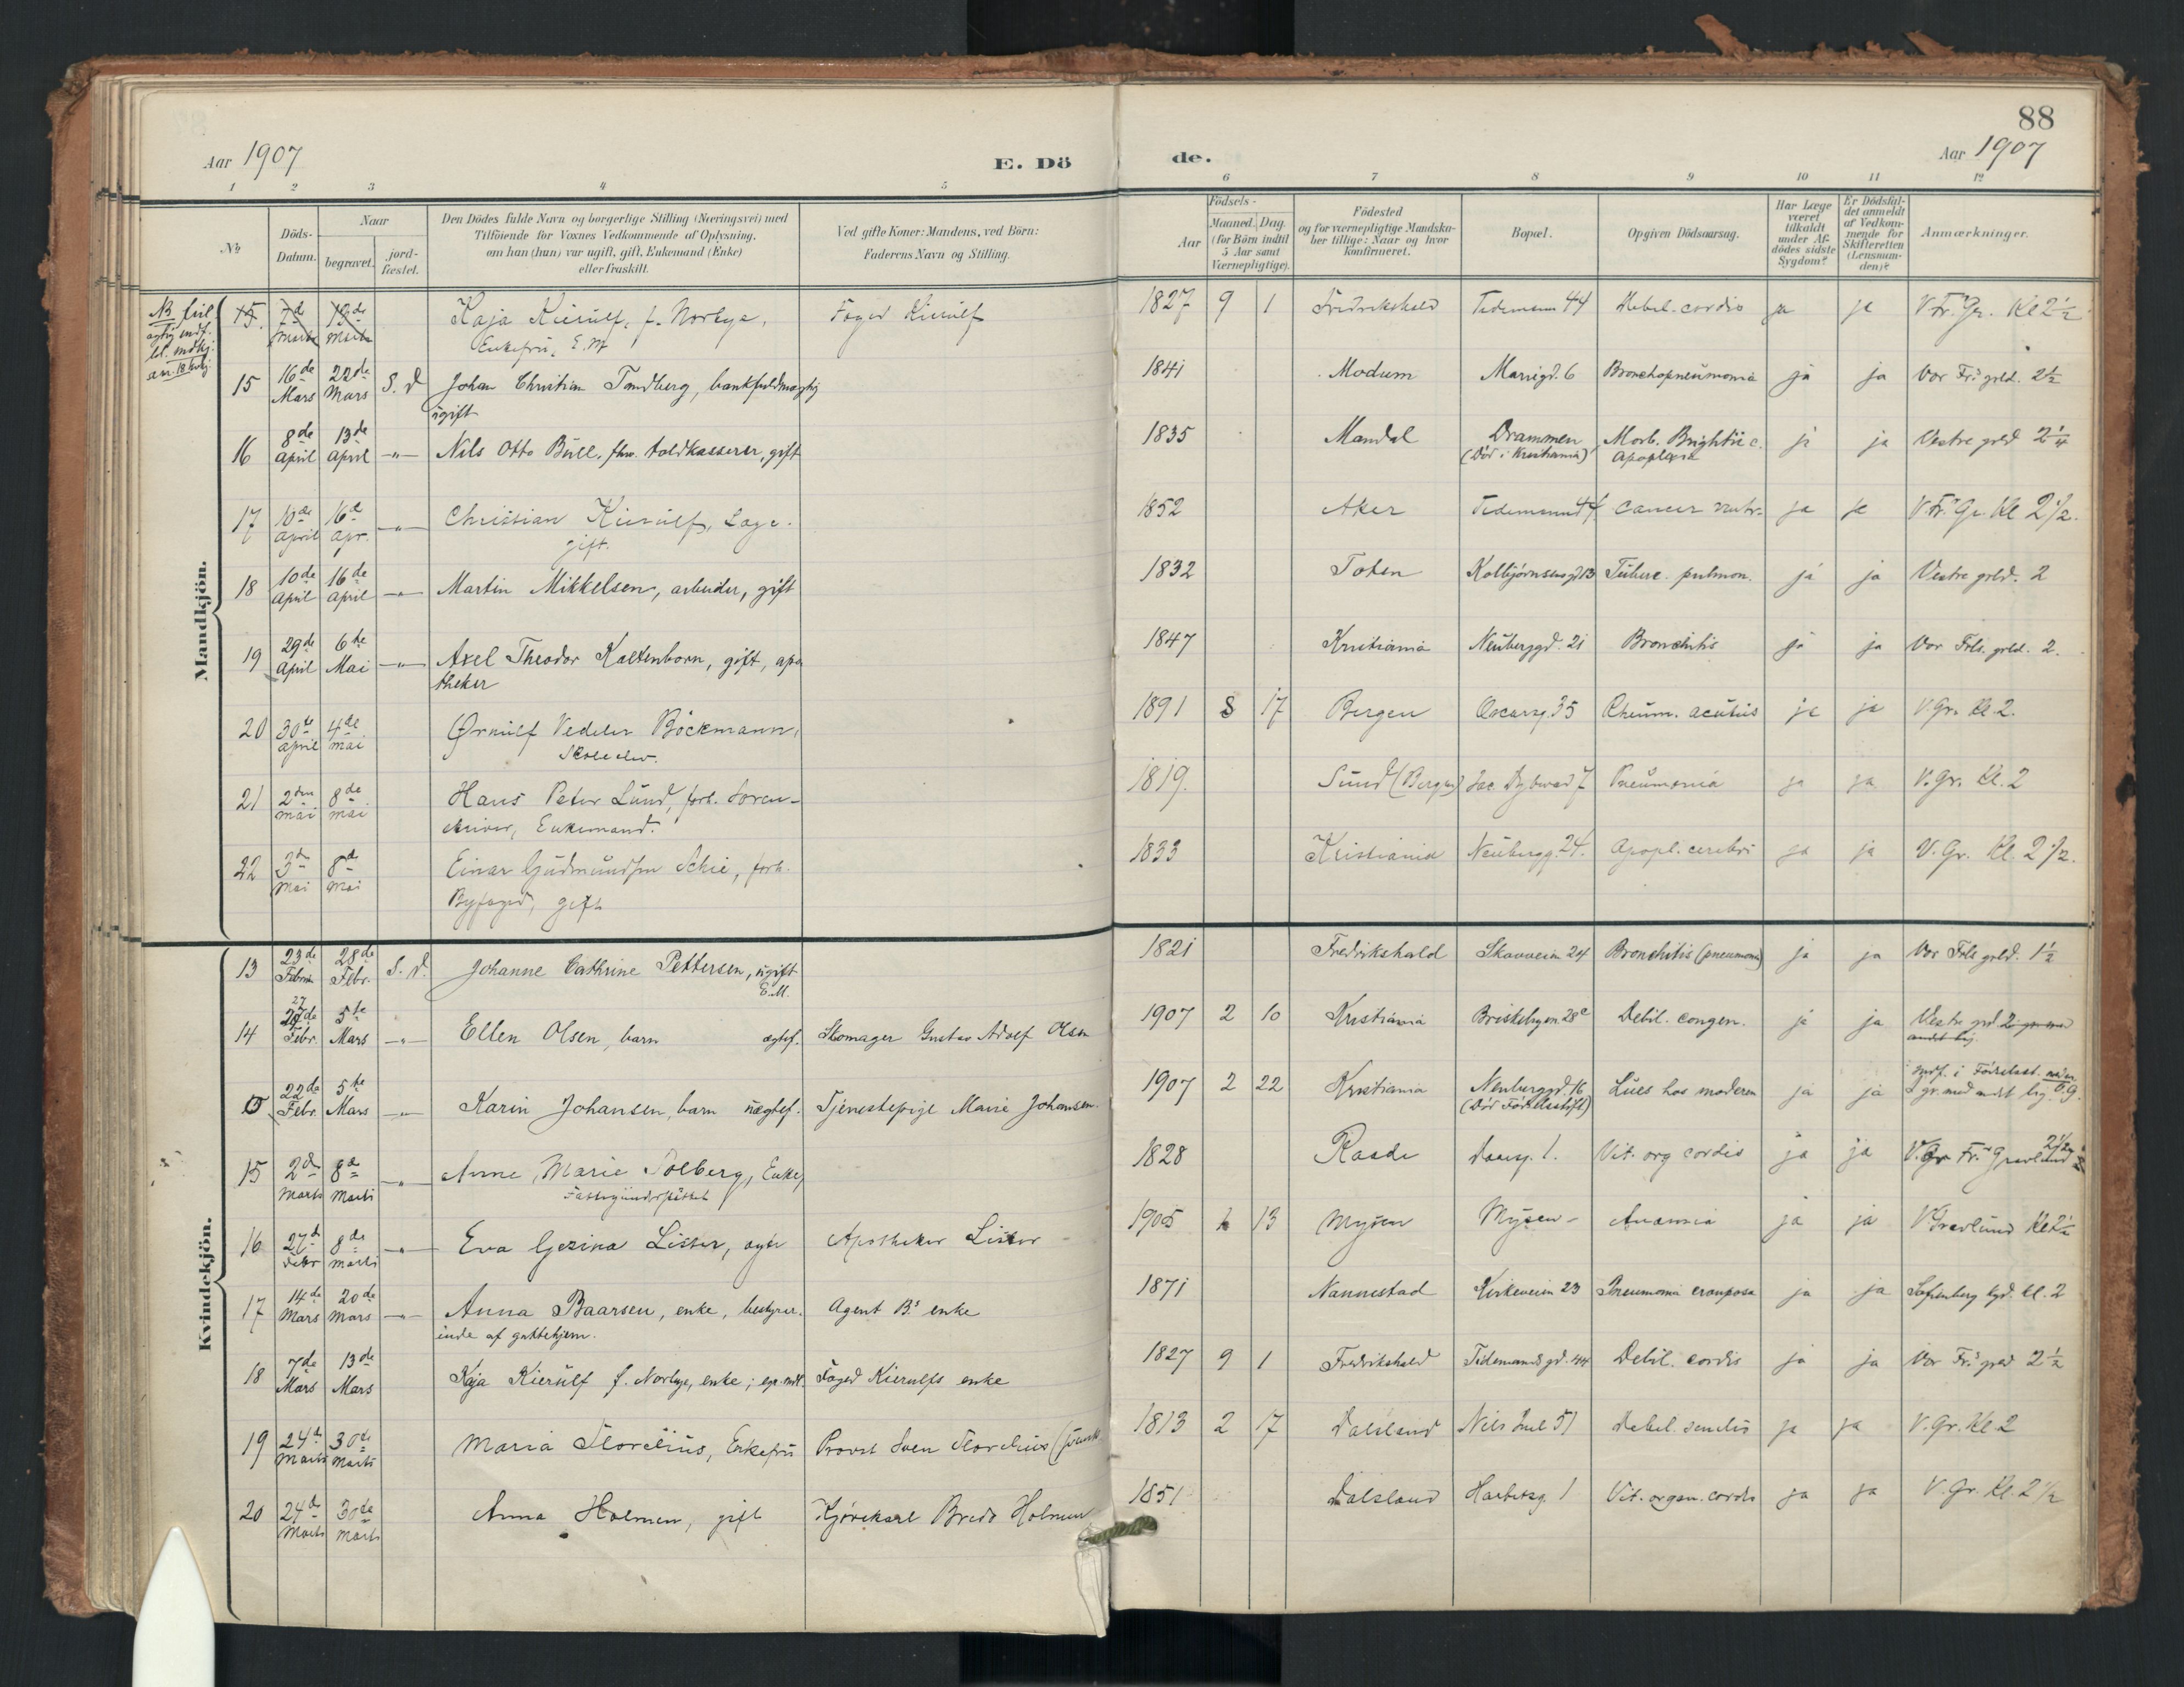 88
Aar 1907
E. Dö
de.
Aar 1907
1 2 3 4 5 6 7 8 9 10 11 12
№
Döds-Datum.
Naar
begravet.
jord-fæstet.
Den Dödes fulde Navn og borgerlige Stilling (Næringsvei) med
Tilföiende for Voxnes Vedkommende af Oplysning,
om han (hun) var ugift, gift, Enkemand (Enke)
eller fraskilt.
Ved gifte Koner: Mandens, ved Börn:
Faderens Navn og Stilling.
Födsels-
Aar
Maaned. Dag.
(for Börn indtil
5 Aar samt
Værnepligtige).
Födested
og for værnepligtige Mandska-
ber tillige: Naar og hvor
konfirmeret.
Bopæl.
Opgiven Dödsaarsag.
Har Læge
været
tilkaldt
under Af-
dödes sidste
Sygdom?
Er Dödsfal-
det anmeldt
af Vedkom-
mende for
Skifteretten
(Lensman-
den)?
Anmærkninger.
Mandkjön.
NB feil
15. 7de Marts 13de Marts Kaja Kierulf, f. Norbye, Foged Kierulf 1827 9 1 Fredrikshald Tidemans 44 Debil. cordis ja ja V. Fr.s Gr. Kl 2½
Enkefru, E.M
15 16de Mars 22de Mars S. d Johan Christian Tandberg, bankfuldmægtig 1841 Modum Marrigd. 6 Bronchopneumonia ja ja Vor Fr.s grld. 2½
ugift
16 8de April 13de April -"- Nils Otto Bull, fhv. toldkasserer, gift 1835 Mandal Drammen (Död i Kristiania) Morb. Brightii c. Apoplexia ja ja Vestre grld 2¼
17 10de April 16de Apr. -"- Christian Kierulf, Læge. 1852 Aker Tidemansd 44 Cancer ventr. ja ja V. Fr.s Gr. Kl 2½.
gift.
18 10de April 16de April -"- Martin Mikkelsen, arbeider, gift 1832 Toten Kolbjørnsens gd 13 Tuberc. pulmon. ja ja Vestre grld. 2
19 29de April 6te Mai -"- Axel Theodor Kaltenborn, gift, apo 1847 Kristiania Neuberggd. 21 Bronchitis ja ja Vor Frls. grld. 2.
theker
20 30te April 4de Mai Ørnulf Vedeler Böckmann, 1891 8 17 Bergen Oscarsg. 35 Rheum. acutus ja ja V. Gr. Kl. 2.
Skoleelev.
21 2den Mai 8de Mai Hans Peter Lund, forh. Soren- 1819. Sund (Bergen) Jac. Dybwad 7 Pneumonia ja ja V. Gr. Kl. 2
skriver, Enkemand.
22 3de Mai 8de Mai Einar Gudmundsen Schie, forh. 1833 Kristiania Neubergg. 24. Apopl. cerebri ja ja V. Gr. Kl. 2½.
Byfoged, gift
Kvindekjön.
13 23de Februar 28de Febr. S. d. Johanne Cathrine Pettersen, ugift 1821 Fredrikshald Skovveien 24 Bronchitis (pneumoni) ja ja Vor Frls grld. 1½
E.M.
14 27de Febr. 5te Mars -"- Ellen Olsen, barn ægtef. Skomager Gustav Adolf Olsen 1907 2 10 Kristiania Briskebyen 28c Debil. congen. ja ja Vestre grd 2
0 22de Febr. 5te Mars -"- Karin Johansen, barn uægtef. Tjenestepige Marie Johansen. 1907 2 22 Kristiania Neuberggd. 16 (Död Födselsstift) Lues hos moderen ja ja
15 2de Marts 8de Marts -"- Anne Marie Solberg, Enke, 1828 Raade Daasg. 1. Vit. org cordis ja ja V. Gr Fr.s Gravlund 2½
16 27de Febr 8de Marts -"- Eva Gezina Lister, ægte Apotheker Lister 1905 1 13 Mysen Mysen Anæmia ja ja V Gravlund Kl 2½
17 14de Mars 20de Mars -"- Anna Baarsen, enke, bestyrer- Agent B.s enke 1871 Nannestad Kirkeveien 23 Pneumoni crouposa ja ja Sofienberg kgd. kl. 2
inde af gattehjem.
18 7de Mars 13de Mars Kaja Kierulf f. Norbye, enke; Foged Kierulfs enke 1827 9 1 Fredrikshald Tidemands gd. 44 Debil. cordis ja ja Vor Fr.s grld 2½
19 24de Marts 30te Marts Maria Florelius, Enkefru Provst Sven Florelius (svensk 1813 2 17 Dalsland Nils Juel 51 Debil. senilis ja ja V. Gr. Kl. 2
20 24de Marts 30te Marts Anna Holmen, gift Kjørekarl Bredo Holmen 1851 Dalsland Harbitzg. 1 Vit. organ. cordis ja ja V. Gr. Kl. 2½